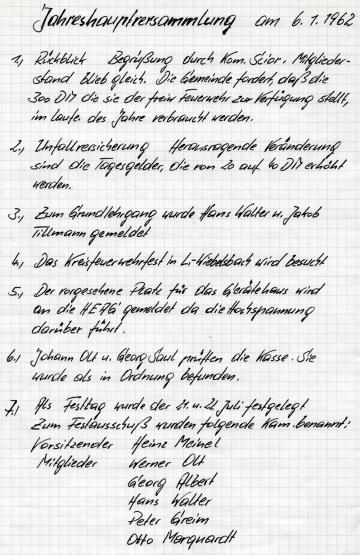 Jahreshauptversammlung am 6.1.1962
1., Rückblick Begrüßung durch Kom. Scior. Mitglieder-
stand blieb gleich. Die Gemeinde fordert, daß die
300 DM die sie der freiw Feuerwehr zur Verfügung stellt,
im laufe des Jahre verbraucht werden.
2., Unfallversicherung Herausragende Veränderung
sind die Tagesgelder, die von 20 auf 40 DM erhöht
werden.
3., Zum Grundlehrgang wurde Hans Walter u. Jakob
Tillmann gemeldet
4., Das Kreisfeuerwehrfest in Li-Wiebelsbach wird besucht
5., Der vorgesehene Platz für das Gerätehaus wird
an die HEAG gemeldet da die Hochspannung
darüber führt.
6., Johann Olt u. Georg Saul prüften die Kasse. Sie
wurde als in Ordnung befunden.
7., Als Festtag wurde der 21. u. 22. Juli festgelegt
Zum Festausschuß wurden folgende Kam. benannt:
Vorsitzender Heinz Meinel
Mitglieder Werner Olt
Georg Albert
Hans Walter
Peter Greim
Otto Marquardt